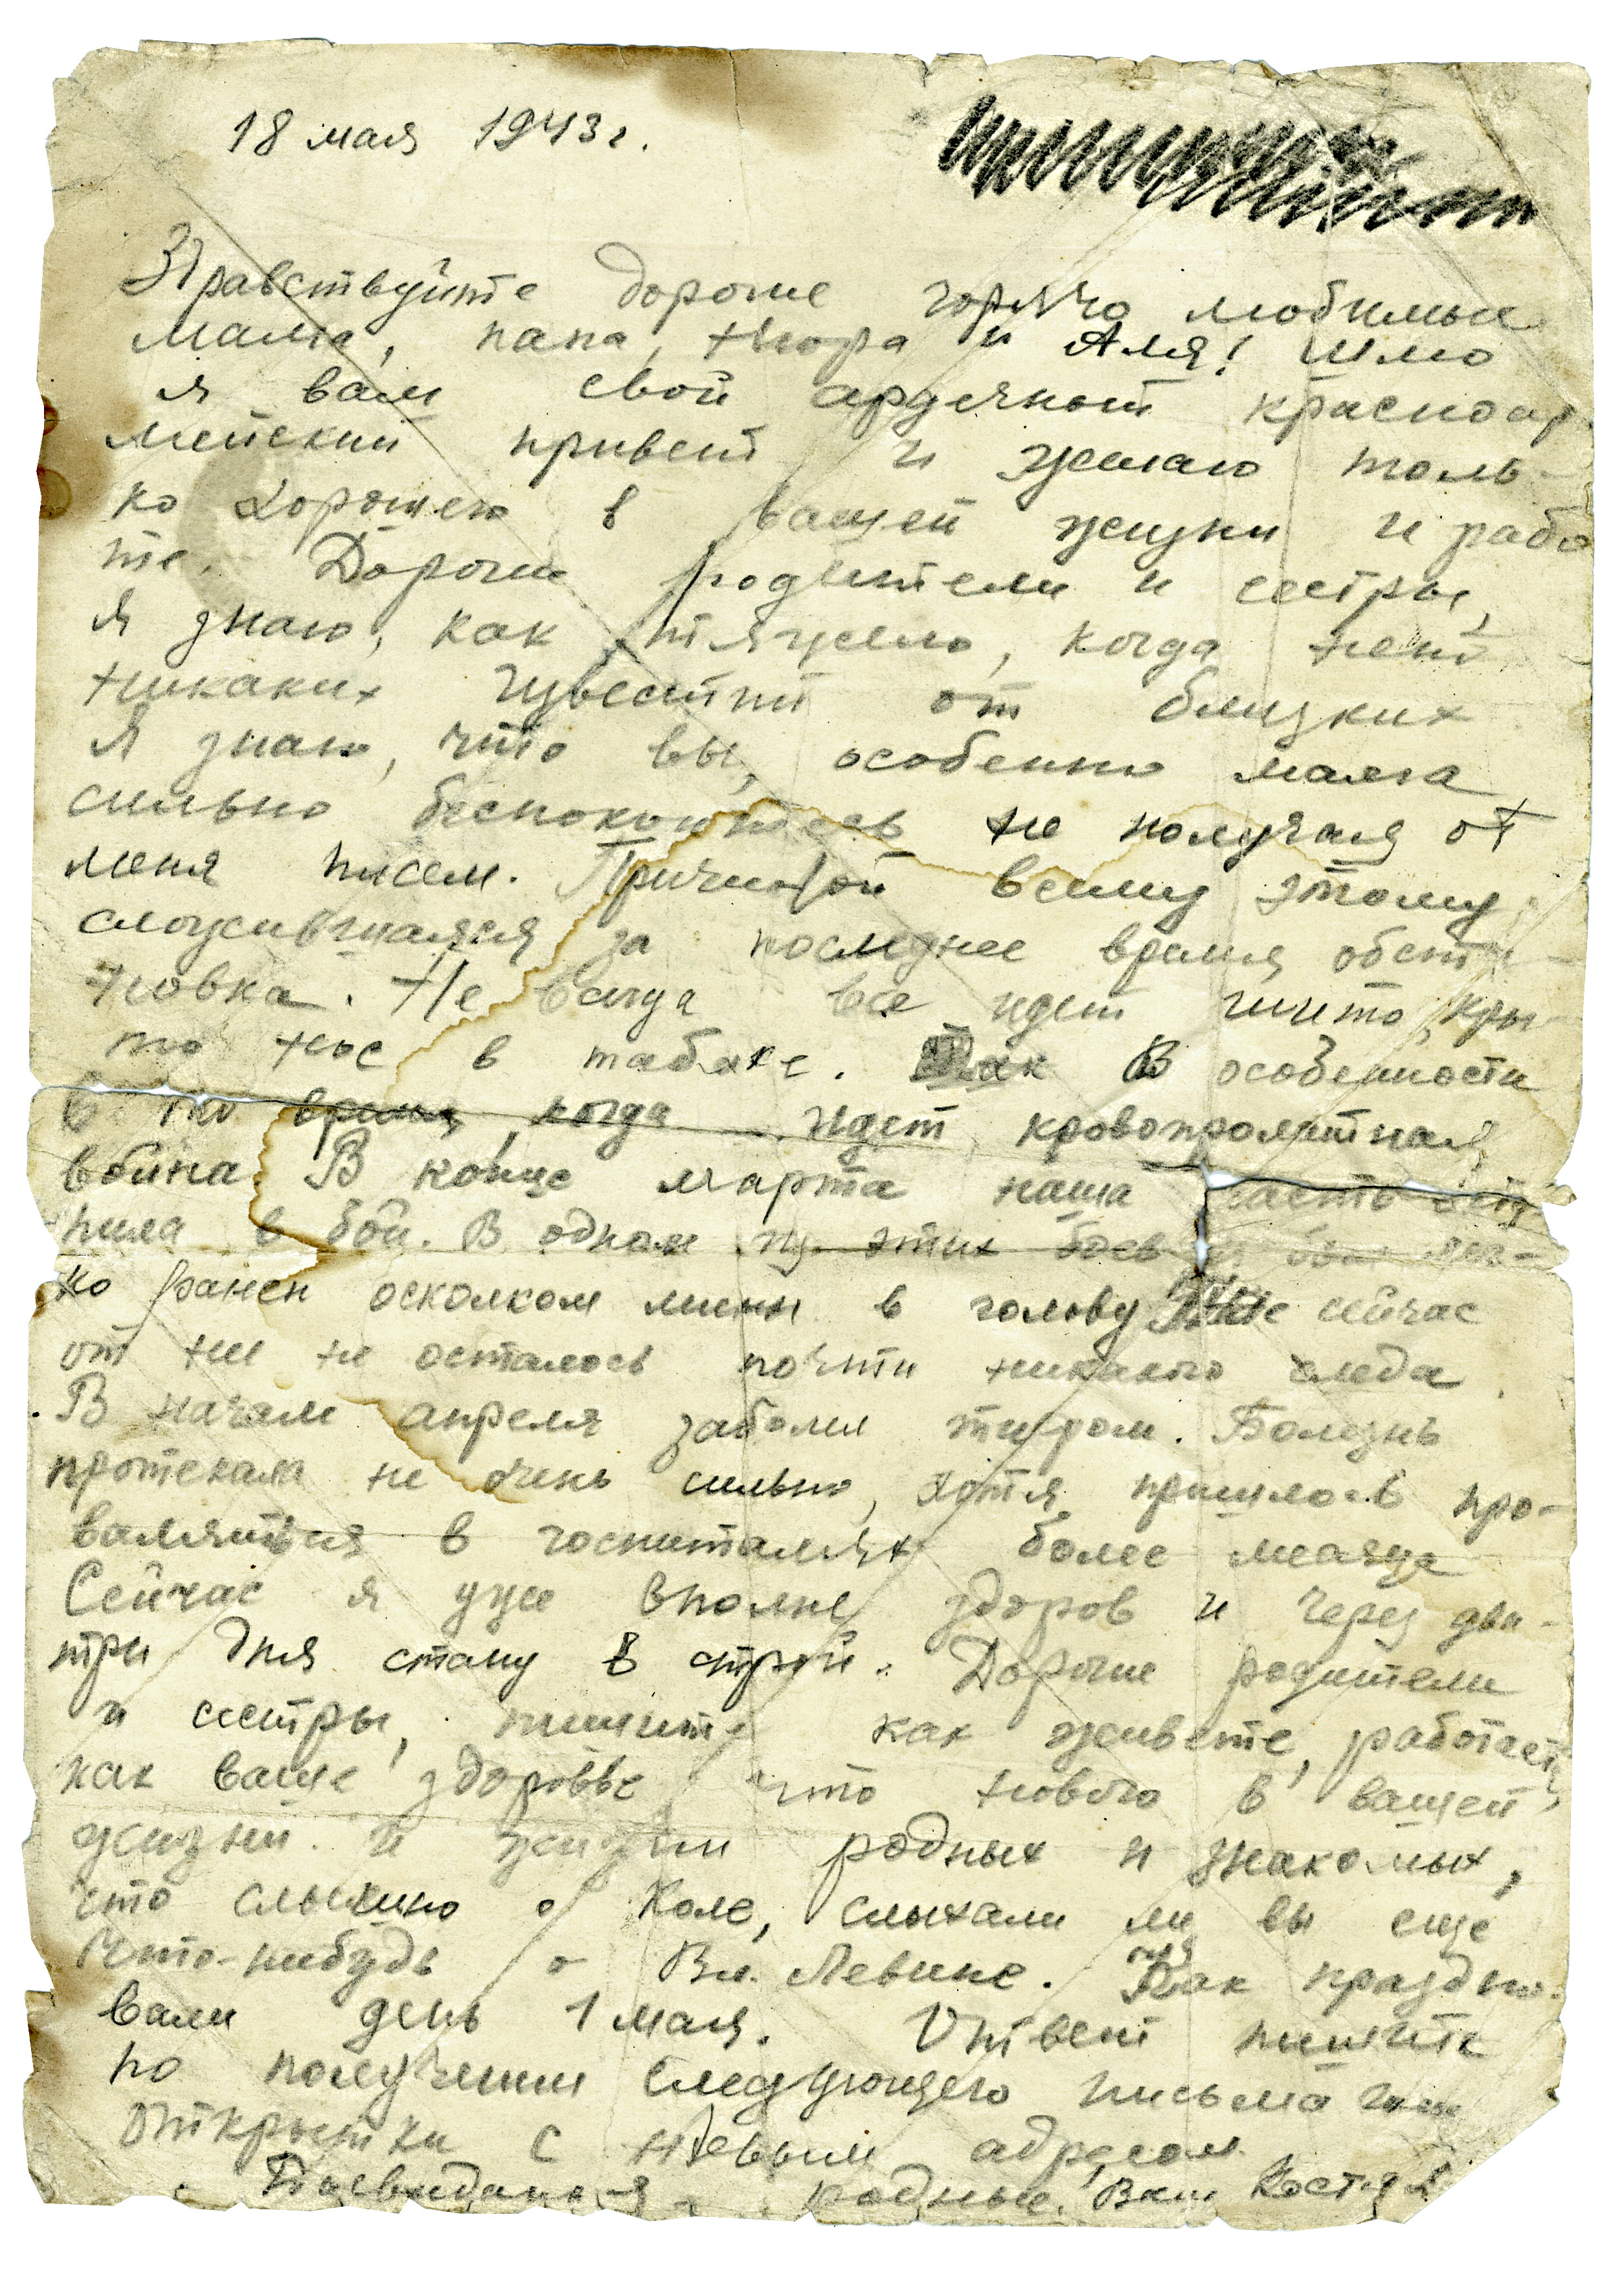 18 мая 1943 г.
Здравствуйте дорогие горячо любимые
мама, папа, Нюра и Аля! Шлю
я вам свой сердечный красноар
мейский привет и желаю толь-
ко хорошего в вашей жизни и рабо
те. Дорогие родители и сестры,
Я знаю, как тяжело, когда нет
никаких известий от близких
Я знаю, что вы, особенно мама
сильно беспокоитесь не получая от
меня писем. Причиной всему этому
сложившаяся за последнее время обста-
новка. Не всегда все идет шито, кры-
то нос в табаке. В особенности
в то время, когда идет кровопролитная
война. В конце марта наша часть всту-
пила в бой. В одном из этих боев я был лег-
ко ранен осколком мины в голову сейчас
от нее не осталось почти никакого следа.
В начале апреля заболел тифом. Болезнь
протекала не очень сильно, хотя пришлось про-
валяться в госпиталях более месяца
Сейчас я уже вполне здоров и через два-
три дня стану в строй. Дорогие родители
и сестры, пишите как живете, работаете,
как ваше здоровье что нового в вашей
жизни и жизни родных и знакомых,
что слышно о Коле, слыхали ли вы еще
что-нибудь о Вл. Левине. Как праздно-
вали день 1 мая. Ответ пишите
по получении следующего письма или
открытки с новым адресом
Досвидания родные. Ваш Костя